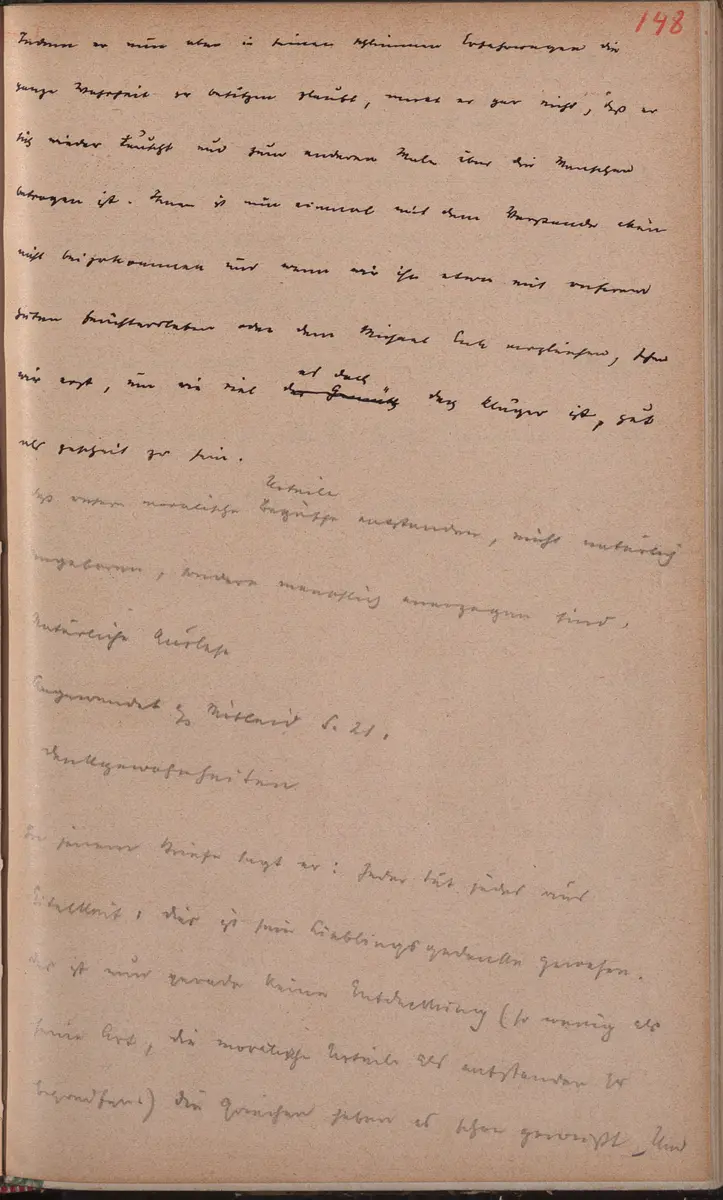 148
Indem er nun aber in seinen schlimmen Erfahrungen die
ganze Wahrheit zu besitzen glaubt, merkt er gar nicht, daß er
sich wieder täuscht und zum anderen Male über die Menschen
betrogen ist. Ihnen ist nun einmal mit dem Verstande allein
nicht beizukommen und wenn wir ihn etwa mit unserem
guten Feuchtersleben oder dem Michael Enk vergleichen, sehen
es doch
wir erst, um wie viel der Gemüth doch klüger ist, gut
als gescheit zu sein.
Urteile
daß unsere moralische Begriffe entstanden, nicht natürlich
angeboren, sondern menschlich anerzogen sind.
Natürliche Auslese
Angewendet Mitleid S. 21.
Denkgewohnheiten
In jenem Briefe sagt er: Jeder tut jedes aus
Eitelkeit; dies ist sein Lieblingsgedanke gewesen.
Das ist nun gerade keine Entdeckung (so wenig als
seine Art, die moralische Urteile als entstanden zu
begreifen.) Die Griechen haben es schon gewußt. Und